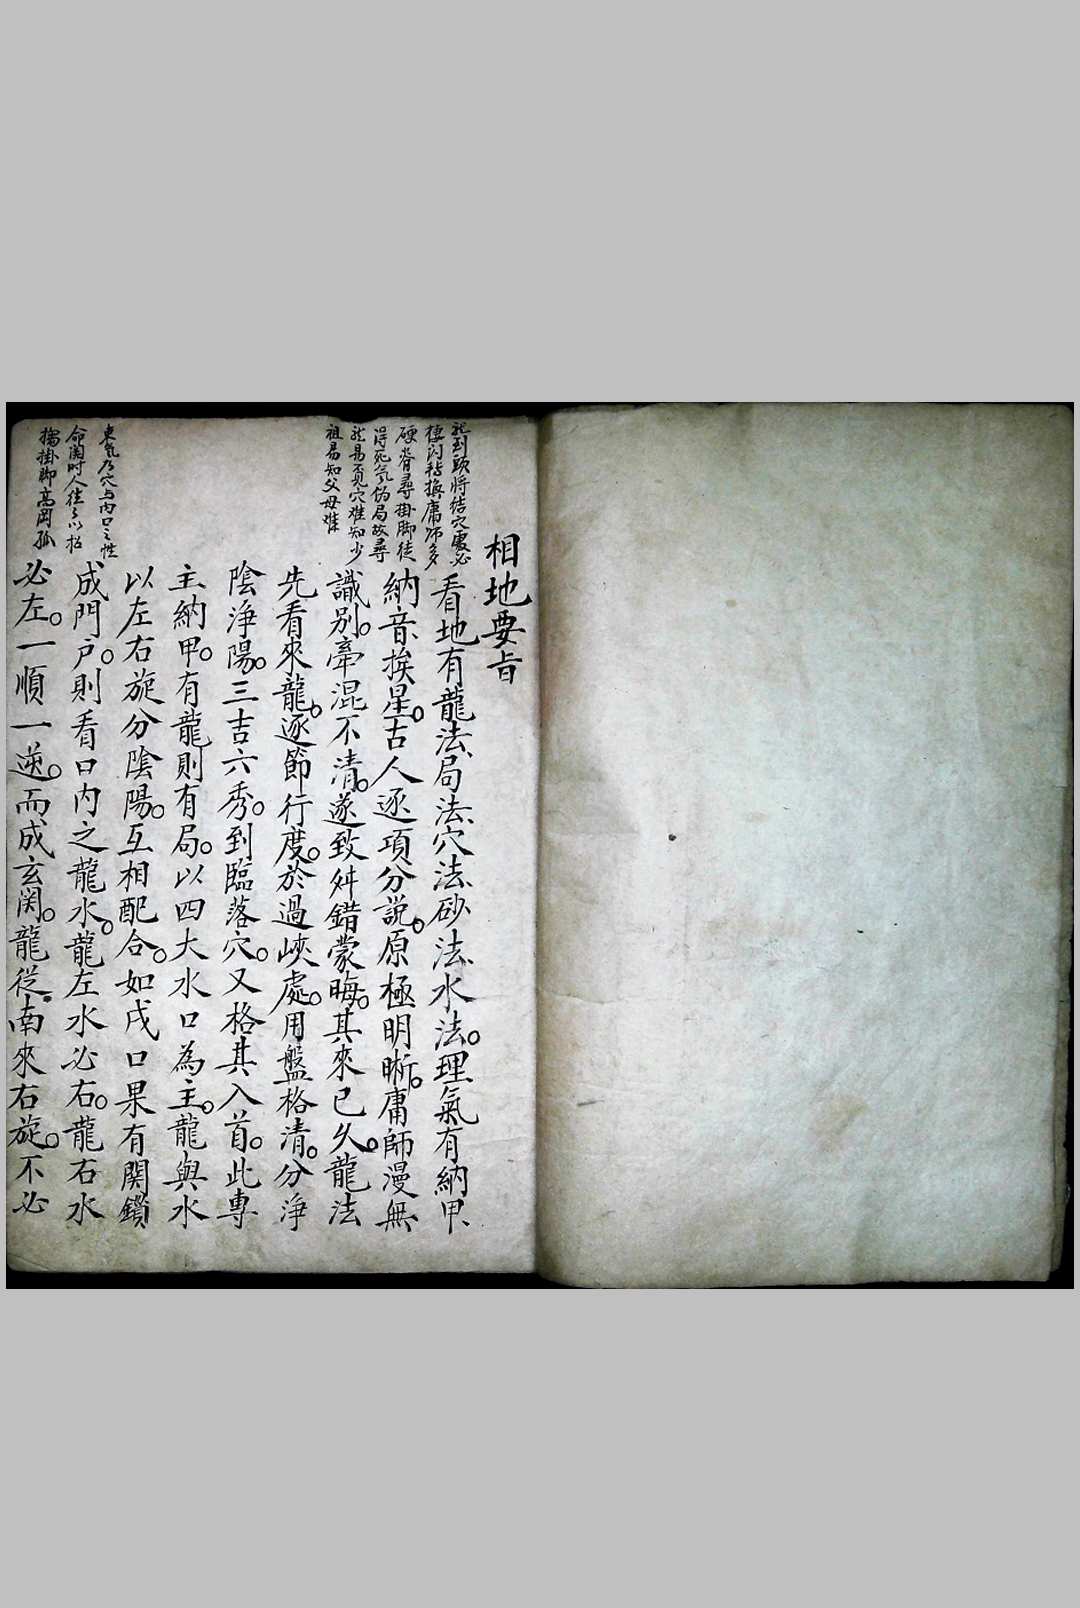 相地要旨
看地有龍法、局法、穴法、砂法、水法。理氣有納甲、
納音、挨星。古人逐項分説。原極明晰。庸師漫無
識別。牽混不清。遂致舛錯蒙晦。其來已久。龍法
先看來龍。逐節行度。於過峽處。用盤格清。分淨
陰淨陽。三吉六秀。到臨落穴。又格其入首。此專
主納甲。有龍則有局。以四大水口為主。龍與水
以左右旋分陰陽。互相配合。如戌口果有関鎖
成門户。則看口内之龍水。龍左水必右。龍右水
必左。一順一逆。而成玄関。龍從南來右旋。不必
龍到頭將結穴處必
棲閃 換庸师多
硬脊尋掛脚徒
得死氣伪局故尋
龍易 穴难知少
祖易知父母难
來氣乃穴与内口之性
命関时人往々以拈
搊掛脚高岡孤